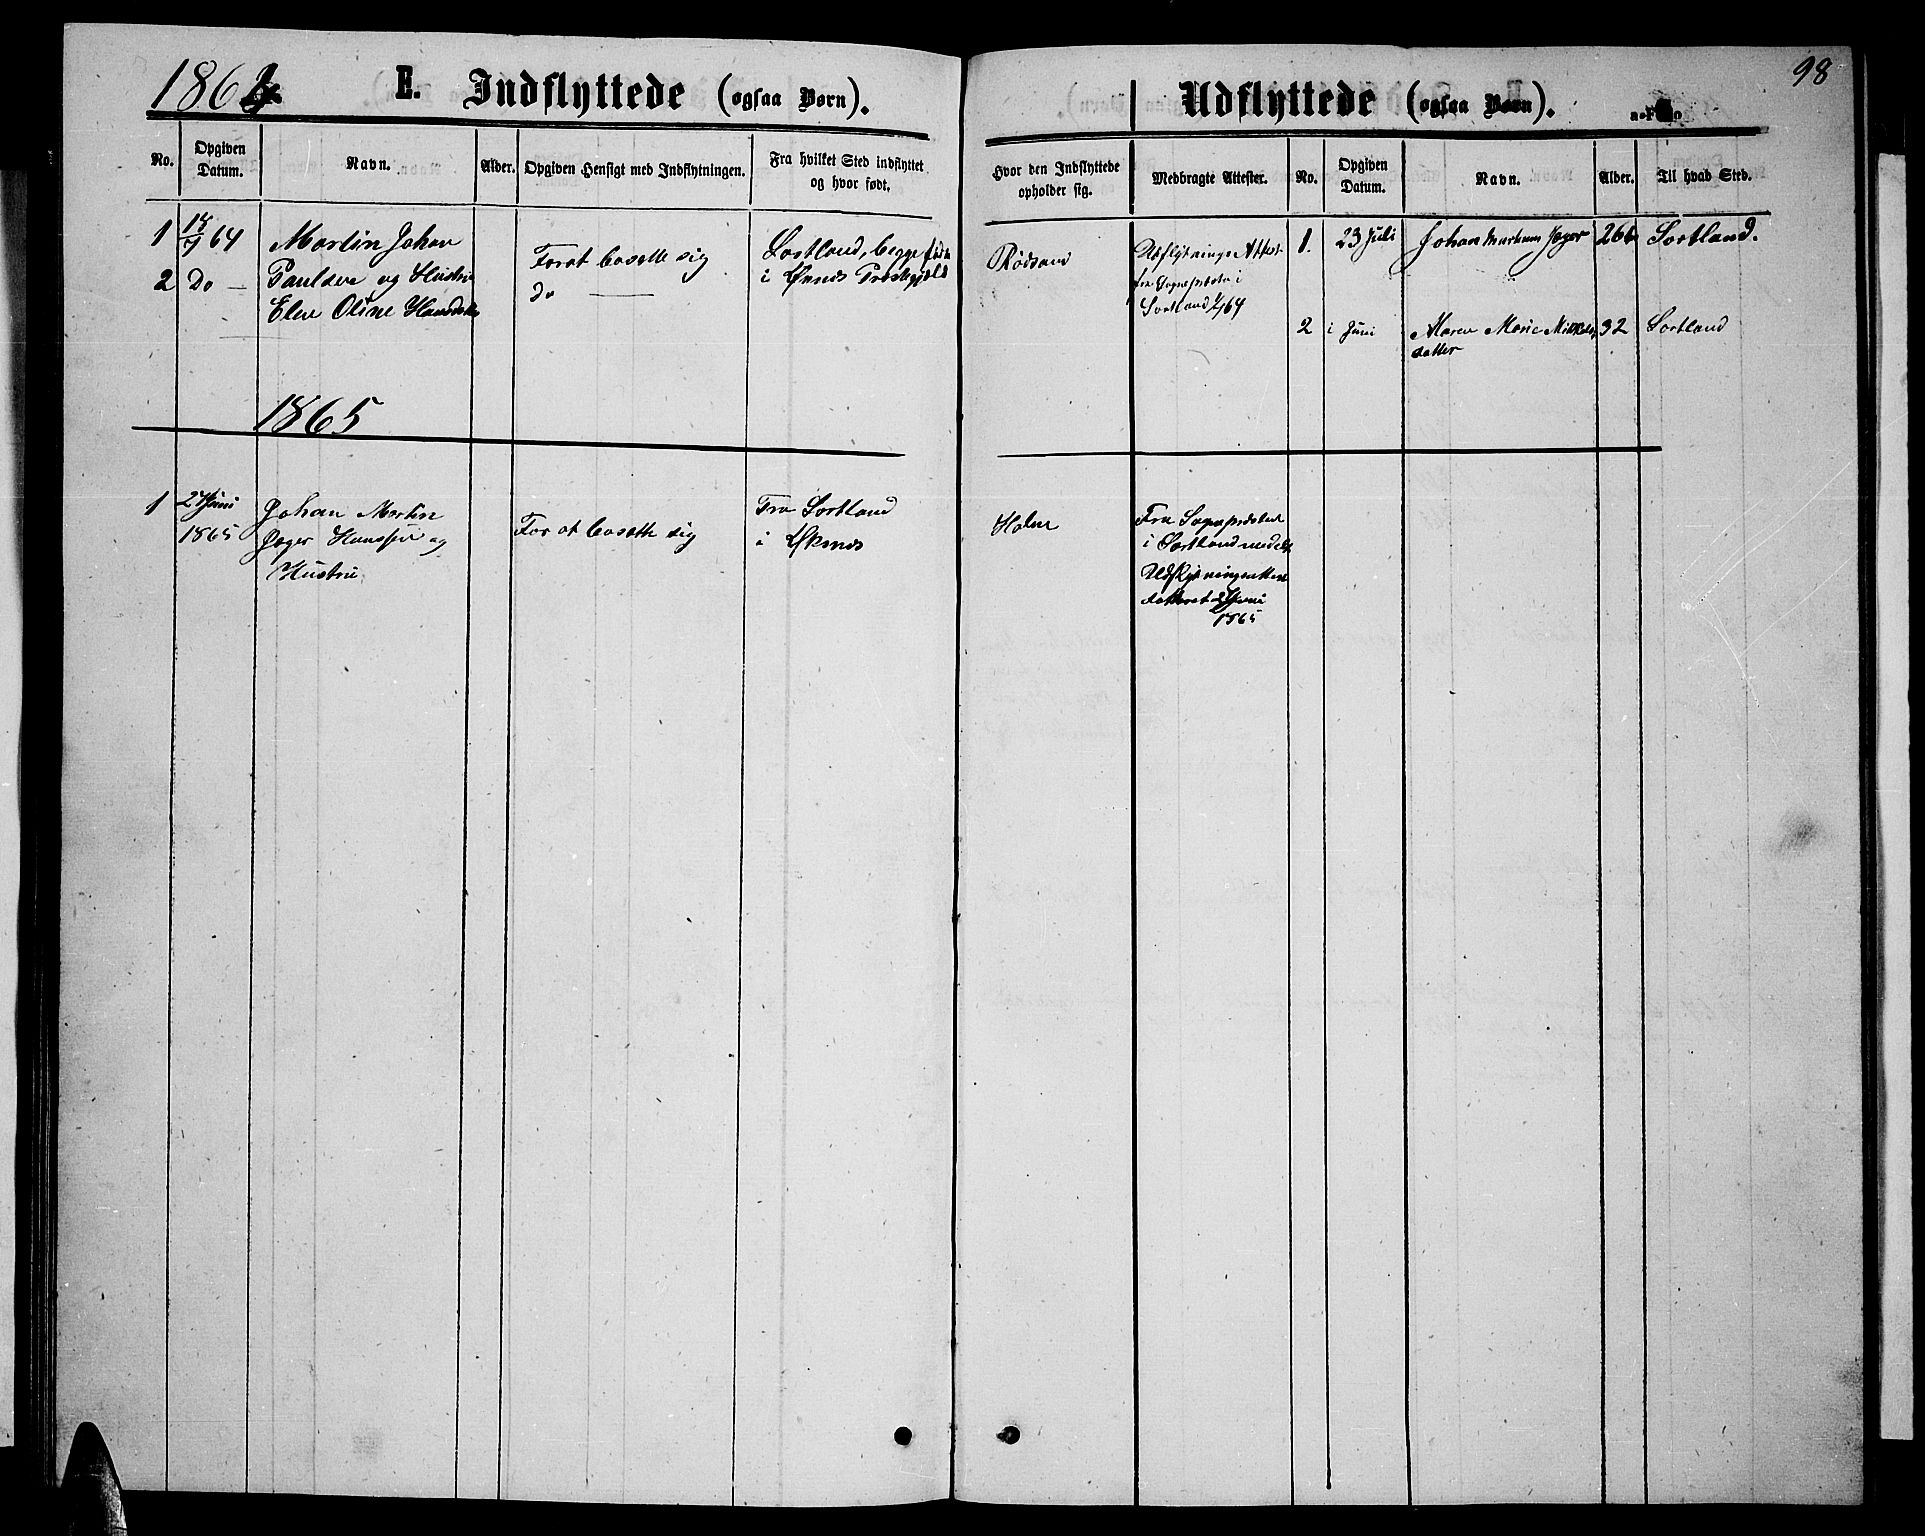 1864 E. Indflyttede (ogsaa Børn).
No. Opgiven Datum. Navn. Alder. Opgiven Hensigt med Indflytningen. Fra hvilket Sted indflyttet og hvor født.
1 18/7 64 Martin Johan
2 Do — Paulsen og Hustru
Elen Oline Hansdatter
Forat bosætte sig
do —
Sortland, begge født
i Øxnæs Præstegjeld
1865
1 2 Juni
1865
Johan Martin
Jæger Hanssen og
Hustru
For at bosætte sig
Fra Sortland
i Øksnæs
Udflyttede (ogsaa Børn).
98
Hvor den Indflyttede opholder sig. Medbragte Attester. No. Opgiven Datum. Navn. Alder. Til hvad Sted.
Rødsand
Udflytnings Attest
fra Sognepræsten i
Sortland 64
1. 23 Juli Johan Jæger 26 Sortland.
2 i Juni Maren Marie Mikkels
datter 32 Sortland
Holm
Fra Sognepræsten
i Sortland
Udflytningsattest
dateret 2 Juni
1865